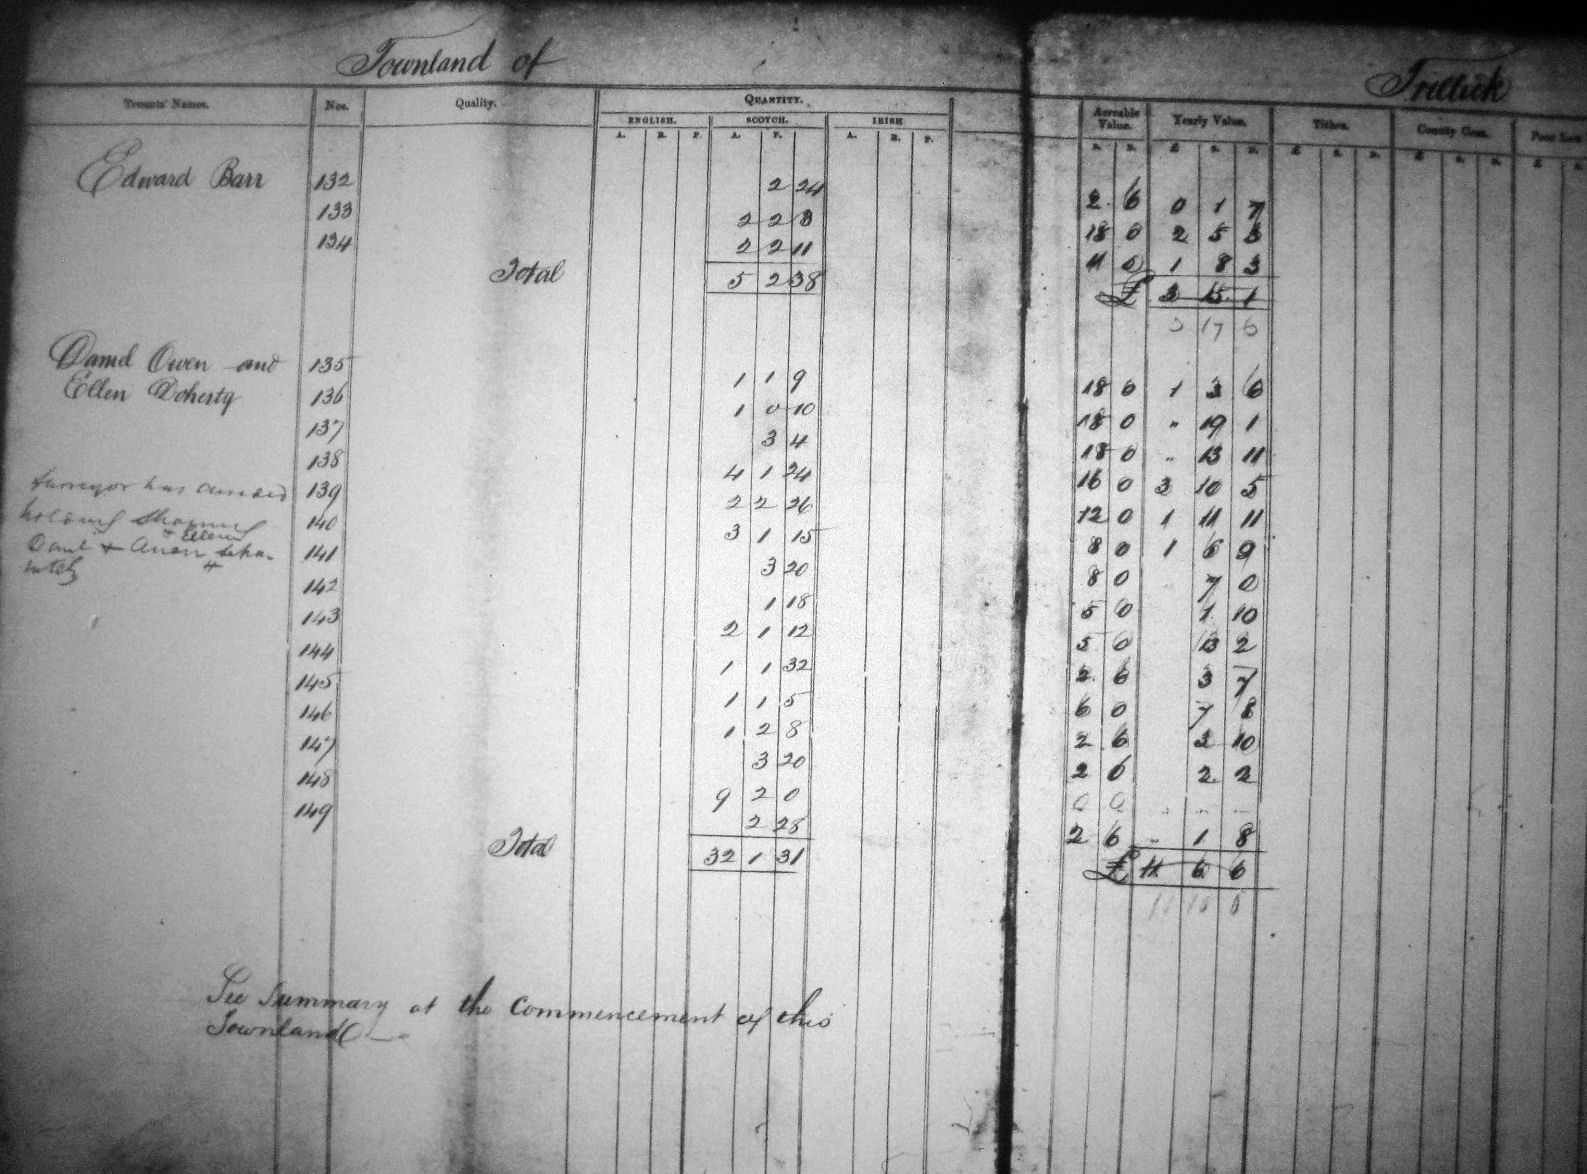 Townland of Trillick
Tenants' Names. Nos. Quality. QUANTITY. Acreable Value. Yearly Value. Tithes. County Cess. Poor Law
ENGLISH. SCOTCH. IRISH
A. R. P. A. P. A. R. P. S. D. £ S. D. £ S. D. £ S. D. £ S.
Edward Barr 132 2 24 2 6 0 1 7
133 2 2 3 18 0 2 5 3
134 2 2 11 11 0 1 8 3
Total 5 2 38 £ 3 15 1
3 17 6
Daniel Owen and 135 1 1 9 18 0 1 3 6
Ellen Doherty 136 1 0 10 18 0 " 19 1
137 3 4 18 0 " 13 11
138 4 1 24 16 0 3 10 5
Surveyor has 139 2 2 26 12 0 1 11 11
holding 140 3 1 15 8 0 1 6 9
& Ellen
Danl & Owen sepa- 141 3 20 8 0 7 0
rately 142 1 18 5 0 1 10
143 2 1 12 5 0 13 2
144 1 1 32 2 6 3 7
145 1 1 5 6 0 7 8
146 1 2 8 2 6 3 10
147 3 20 2 6 2 2
148 9 2 0 0 0 " " "
149 2 28 2 6 " 1 8
Total 32 1 31 £ 11 6 6
See Summary at the Commencement of this
Townland